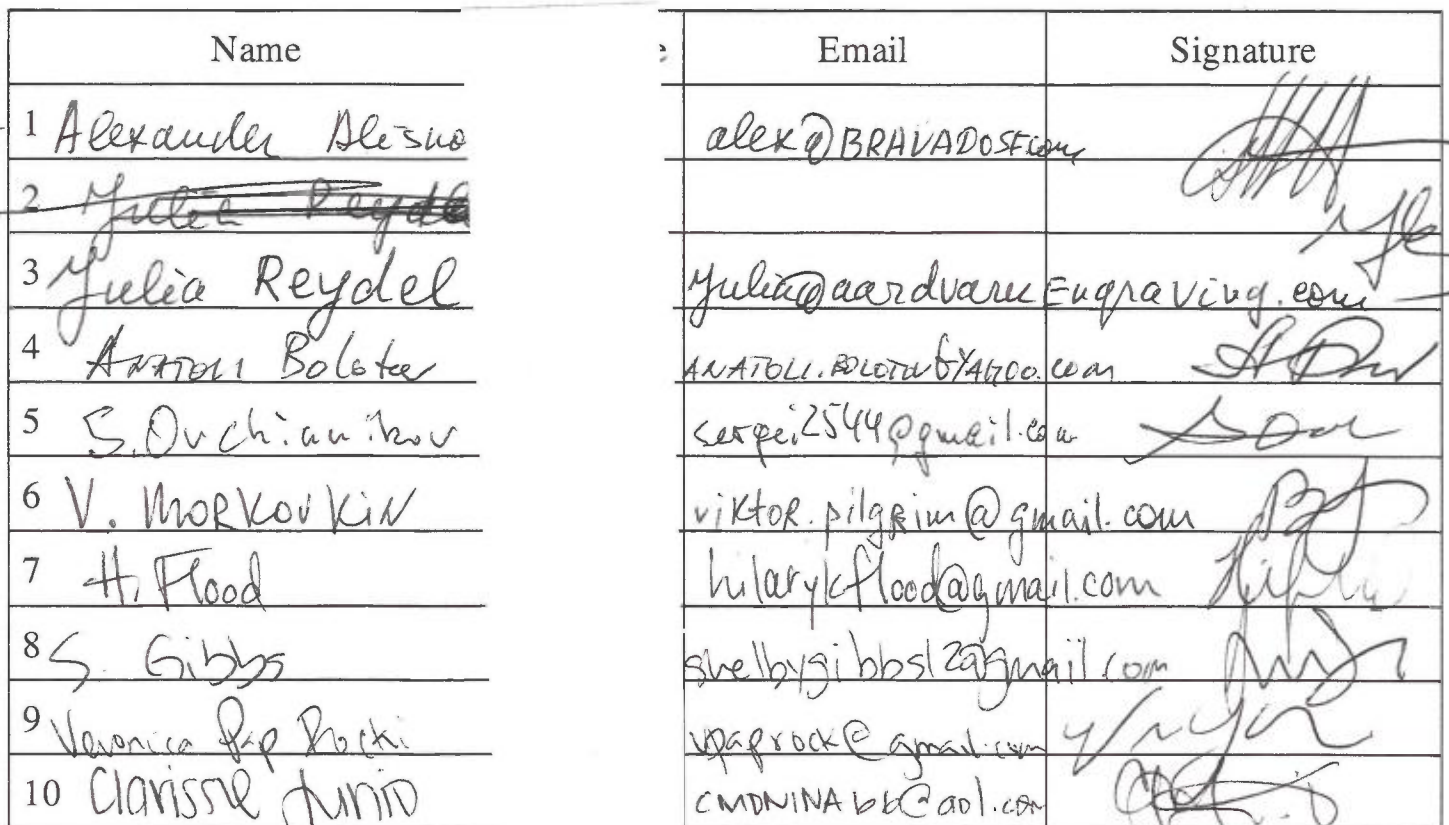 Name Email Signature
1 Alexander Alesho alex@BRAVADOSF.com
2 Yulia Reydel
3 Yulia Reydel Yulia@aardvarkEngraving.com
4 ANATOLI Bolotov
5 S. Ovchiannikov sergei2544@gmail.com
6 V. MORKOVKIN viktor.pilgrim@gmail.com
7 H. Flood hilarykflood@gmail.com
8 S. Gibbs shelbygibbs12@gmail.com
9 Veronica Pap Rocki vpaprock@gmail.com
10 Clarisse CMDNINAbb@aol.com